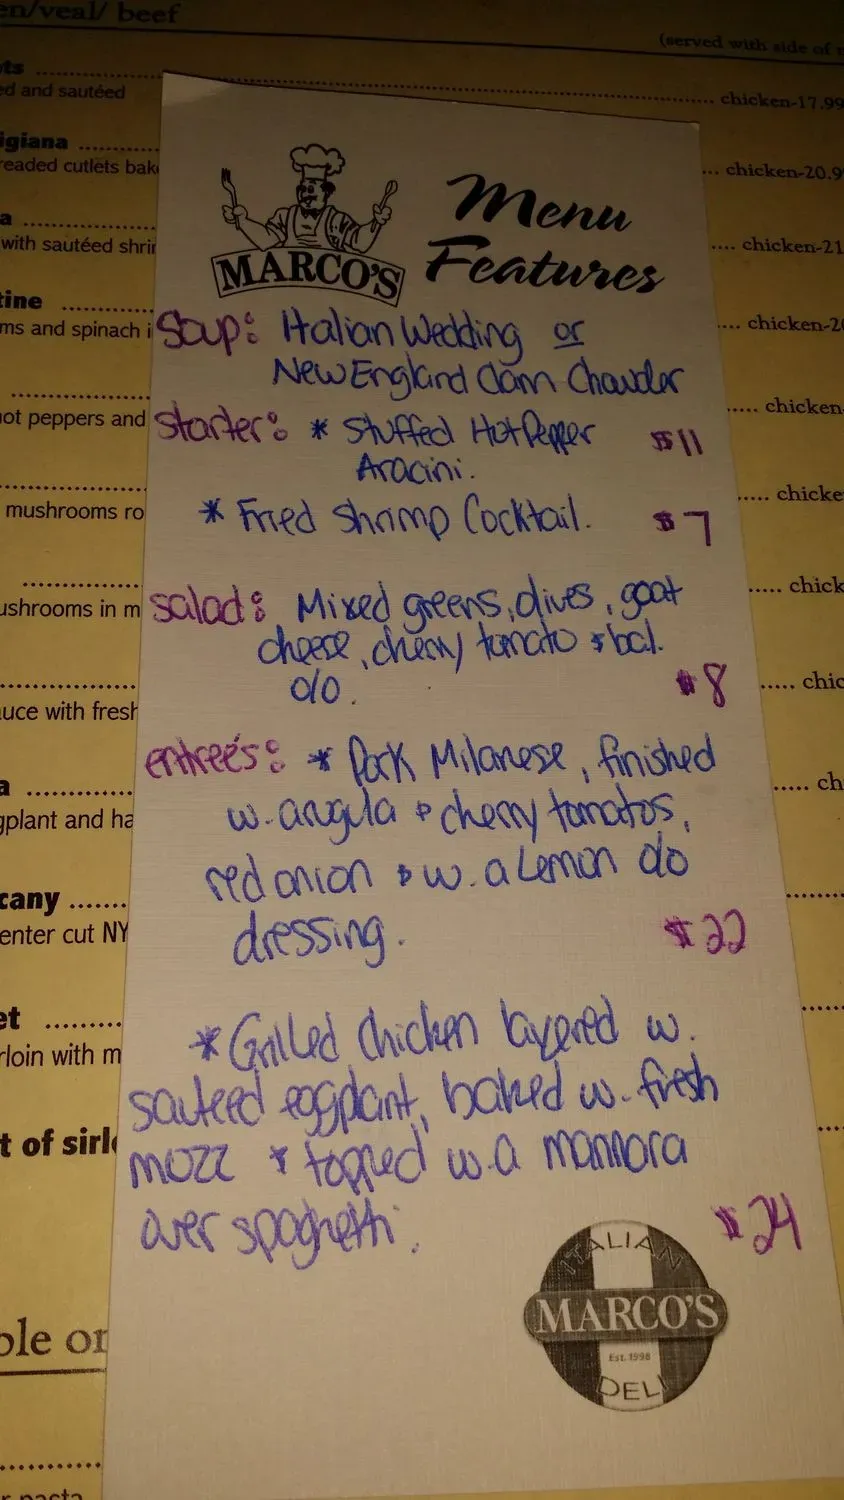 en/veal/ beef
(served with side of
ts
chicken-17.99
ed and sautéed
igiana
chicken-20.9
readed cutlets bak
a
chicken-21
with sautéed shri
tine
chicken-2
ms and spinach i
chicken-
ot peppers and
chicke
mushrooms ro
chick
ushrooms in m
chic
uce with fresh
a
ch
gplant and ha
cany
enter cut NY
et
rloin with m
t of sirl
ble or
r pasta
MARCO'S
Menu
Features
Soup: Italian Wedding or
New England Clam Chowder
Starter: * Stuffed Hot Pepper $11
Aracini.
* Fried Shrimp Cocktail. $7
Salad: Mixed greens, olives, goat
cheese, cherry tomato & bal.
o/o. $8
entree's: * Pork Milanese, finished
w. arugula & cherry tomatos,
red onion & w. a Lemon o/o
dressing. $22
* Grilled Chicken layered w.
sauteed eggplant, baked w. fresh
mozz & topped w. a marinara
over spaghetti. $24
ITALIAN
MARCO'S
Est. 1998
DELI